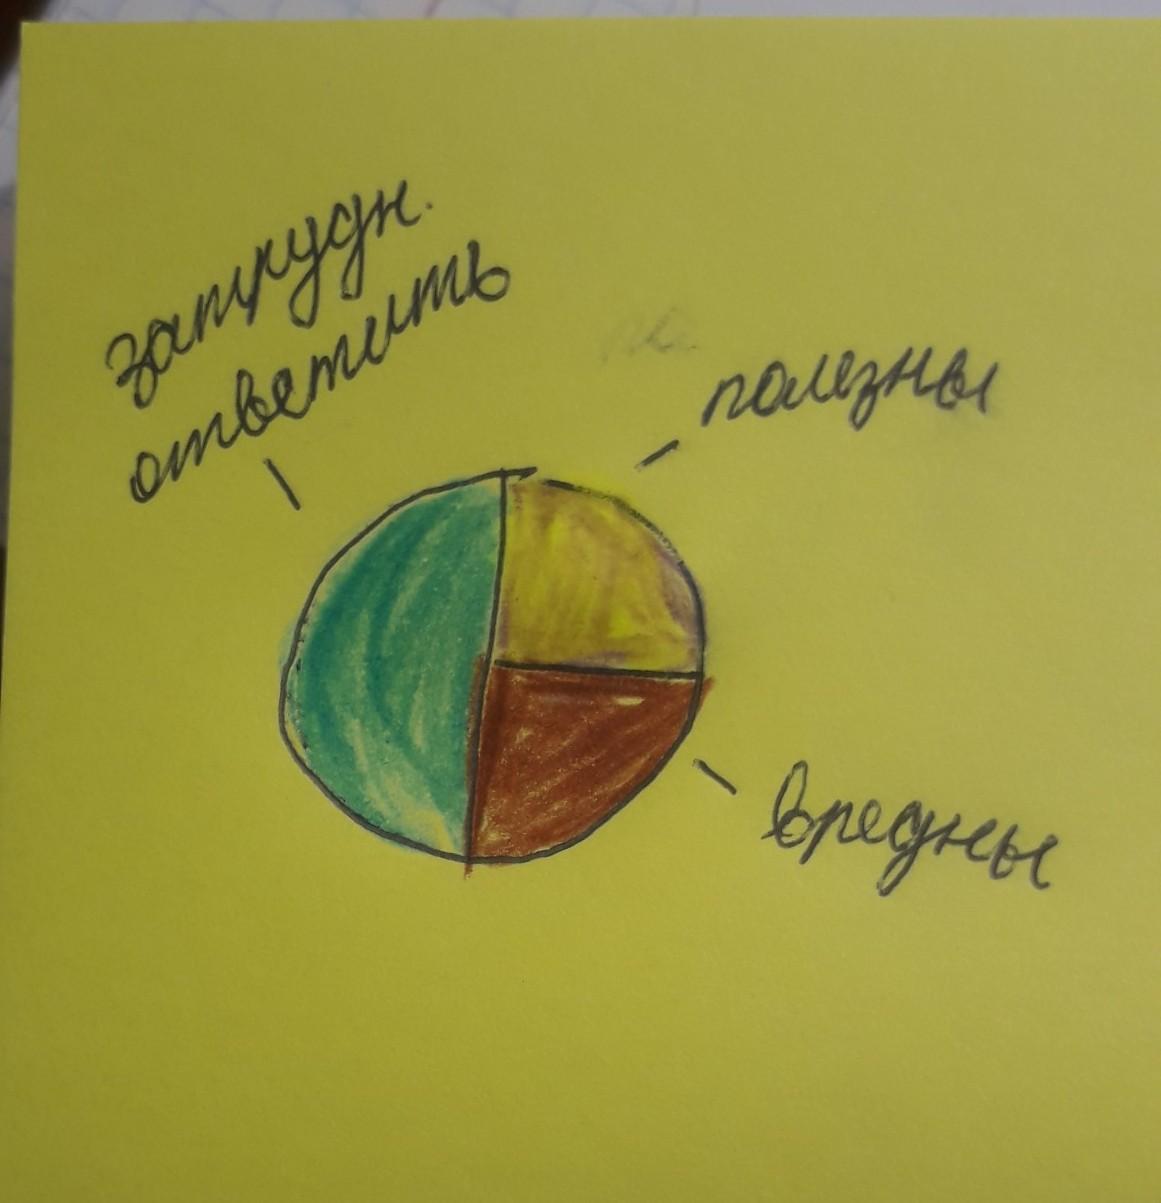 затрудн.
ответить
полезны
вредны